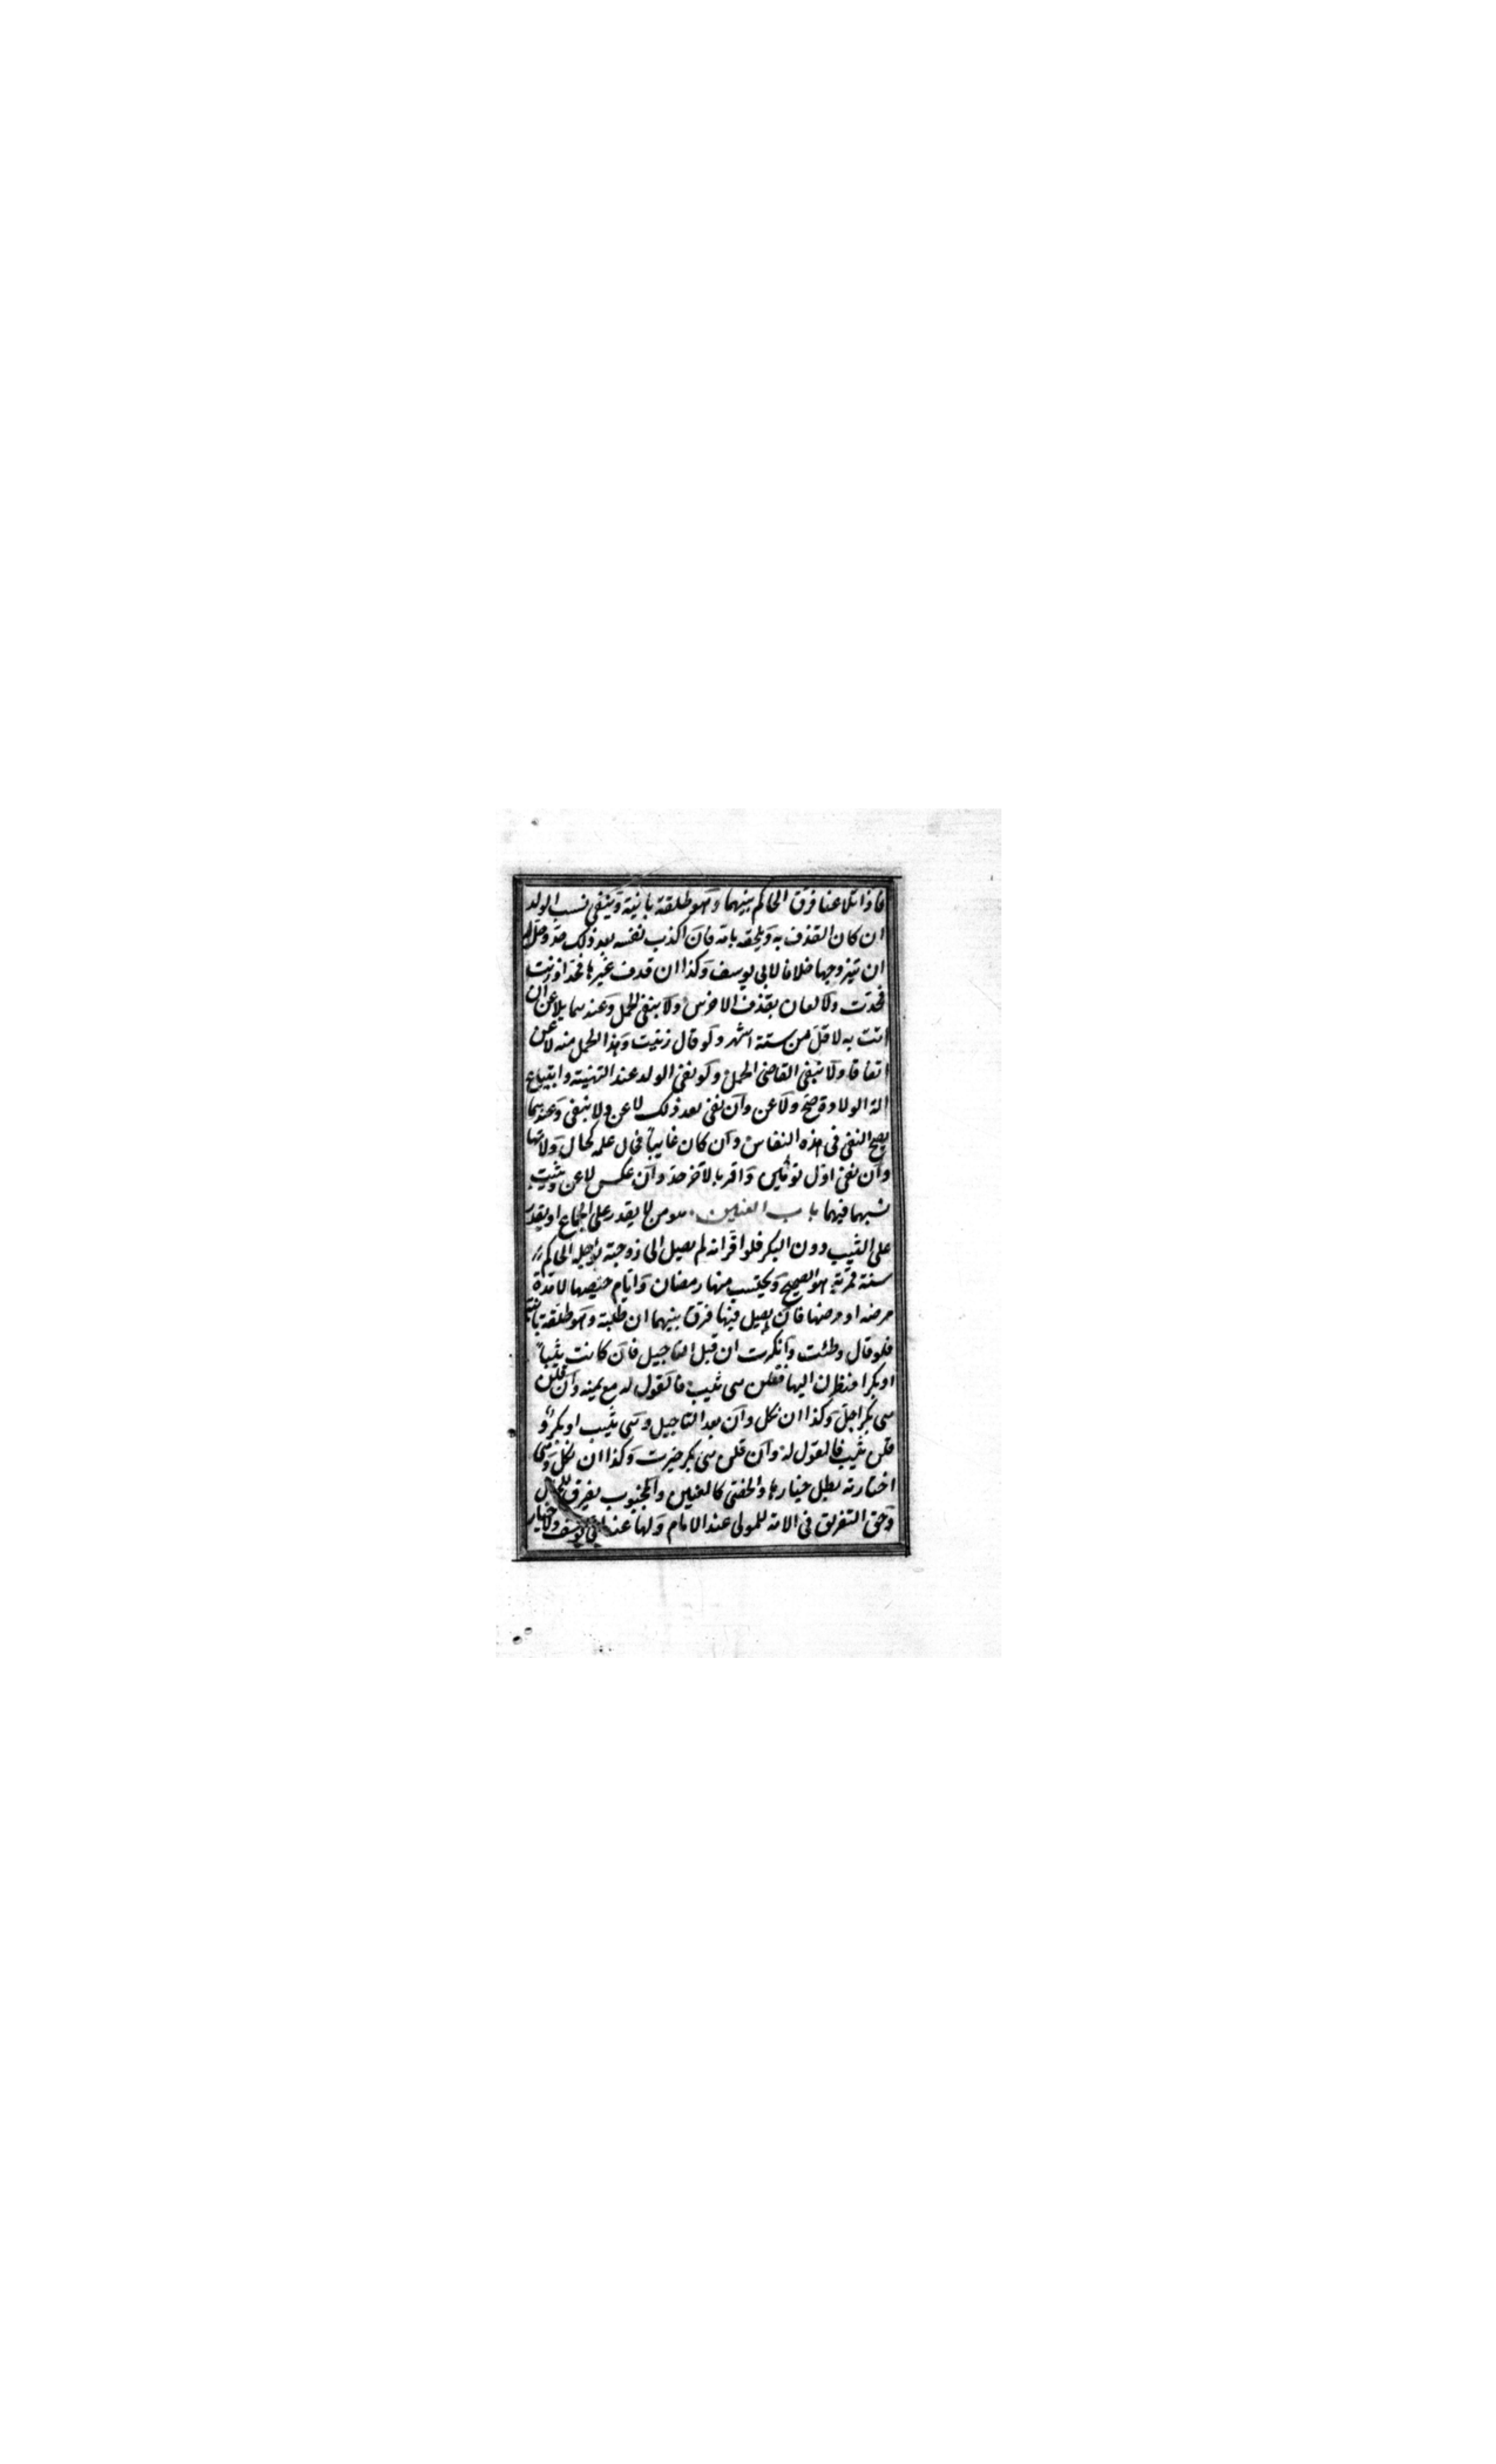 فاذا تلاعنا فرق الحاكم بينهما وهو طلقة بائنة وينفي نسب الولد
ان كان القذف به ويلحقه بامه فان اكذب نفسه بعد ذلك حد وحل له
ان يتزوجها خلافا لابي يوسف وكذا ان قذف غيرها فحد او زنت
فحدت ولا لعان بقذف الاخرس ولا بنفي الحمل وعندهما يلاعن ان
اتت به لاقل من ستة اشهر ولو قال زنيت وهذا الحمل منه لاعن
اتفاقا ولا ينفي القاضي الحمل ولو نفى الولد عند التهنية وابتياع
الة الولادة صح ولاعن وان نفى بعد ذلك لاعن ولا ينفي وعندهما
يصح النفي في هذه النفاس وان كان غايبا فحال علمه كحال ولادتها
وان نفى اول توأمين واقر بالاخر حد وان عكس لاعن ويثبت
نسبهما فيهما باب العنين هو من لا يقدر على الجماع او يقدر
على الثيب دون البكر فلو اقر انه لم يصل الى زوجته يؤجله الحاكم
سنة قمرية هو الصحيح ويحتسب منها رمضان وايام حيضها لا مدة
مرضه او مرضها فان لم يصل فيها فرق بينهما ان طلبته وهو طلقة بائنة
فلو قال وطئت وانكرت ان قبل التاجيل فان كانت ثيبا
او بكرا فنظرن اليها فقلن هي ثيب فالقول له مع يمينه وان قلن
هي بكر اجل وكذا ان نكل وان بعد التاجيل وهي ثيب او بكر و
قلن ثيب فالقول له وان قلن هي بكر خيرت وكذا ان نكل ومتى
اختارته بطل خيارها والخصي كالعنين والمجبوب يفرق للحال
وحق التفريق في الامة للمولى عند الامام ولها عند ابي يوسف ولا خيار